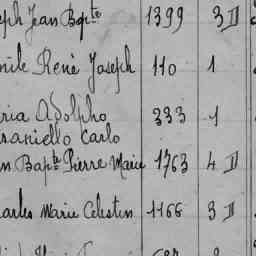 eph Jean Bapte 1399 3 D
mile René Joseph 110 1
ria Adolpho 333 1
raniello Carlo
n Bapte Pierre Marie 1763 4 D
harles Marie Celestin 1166 3 D